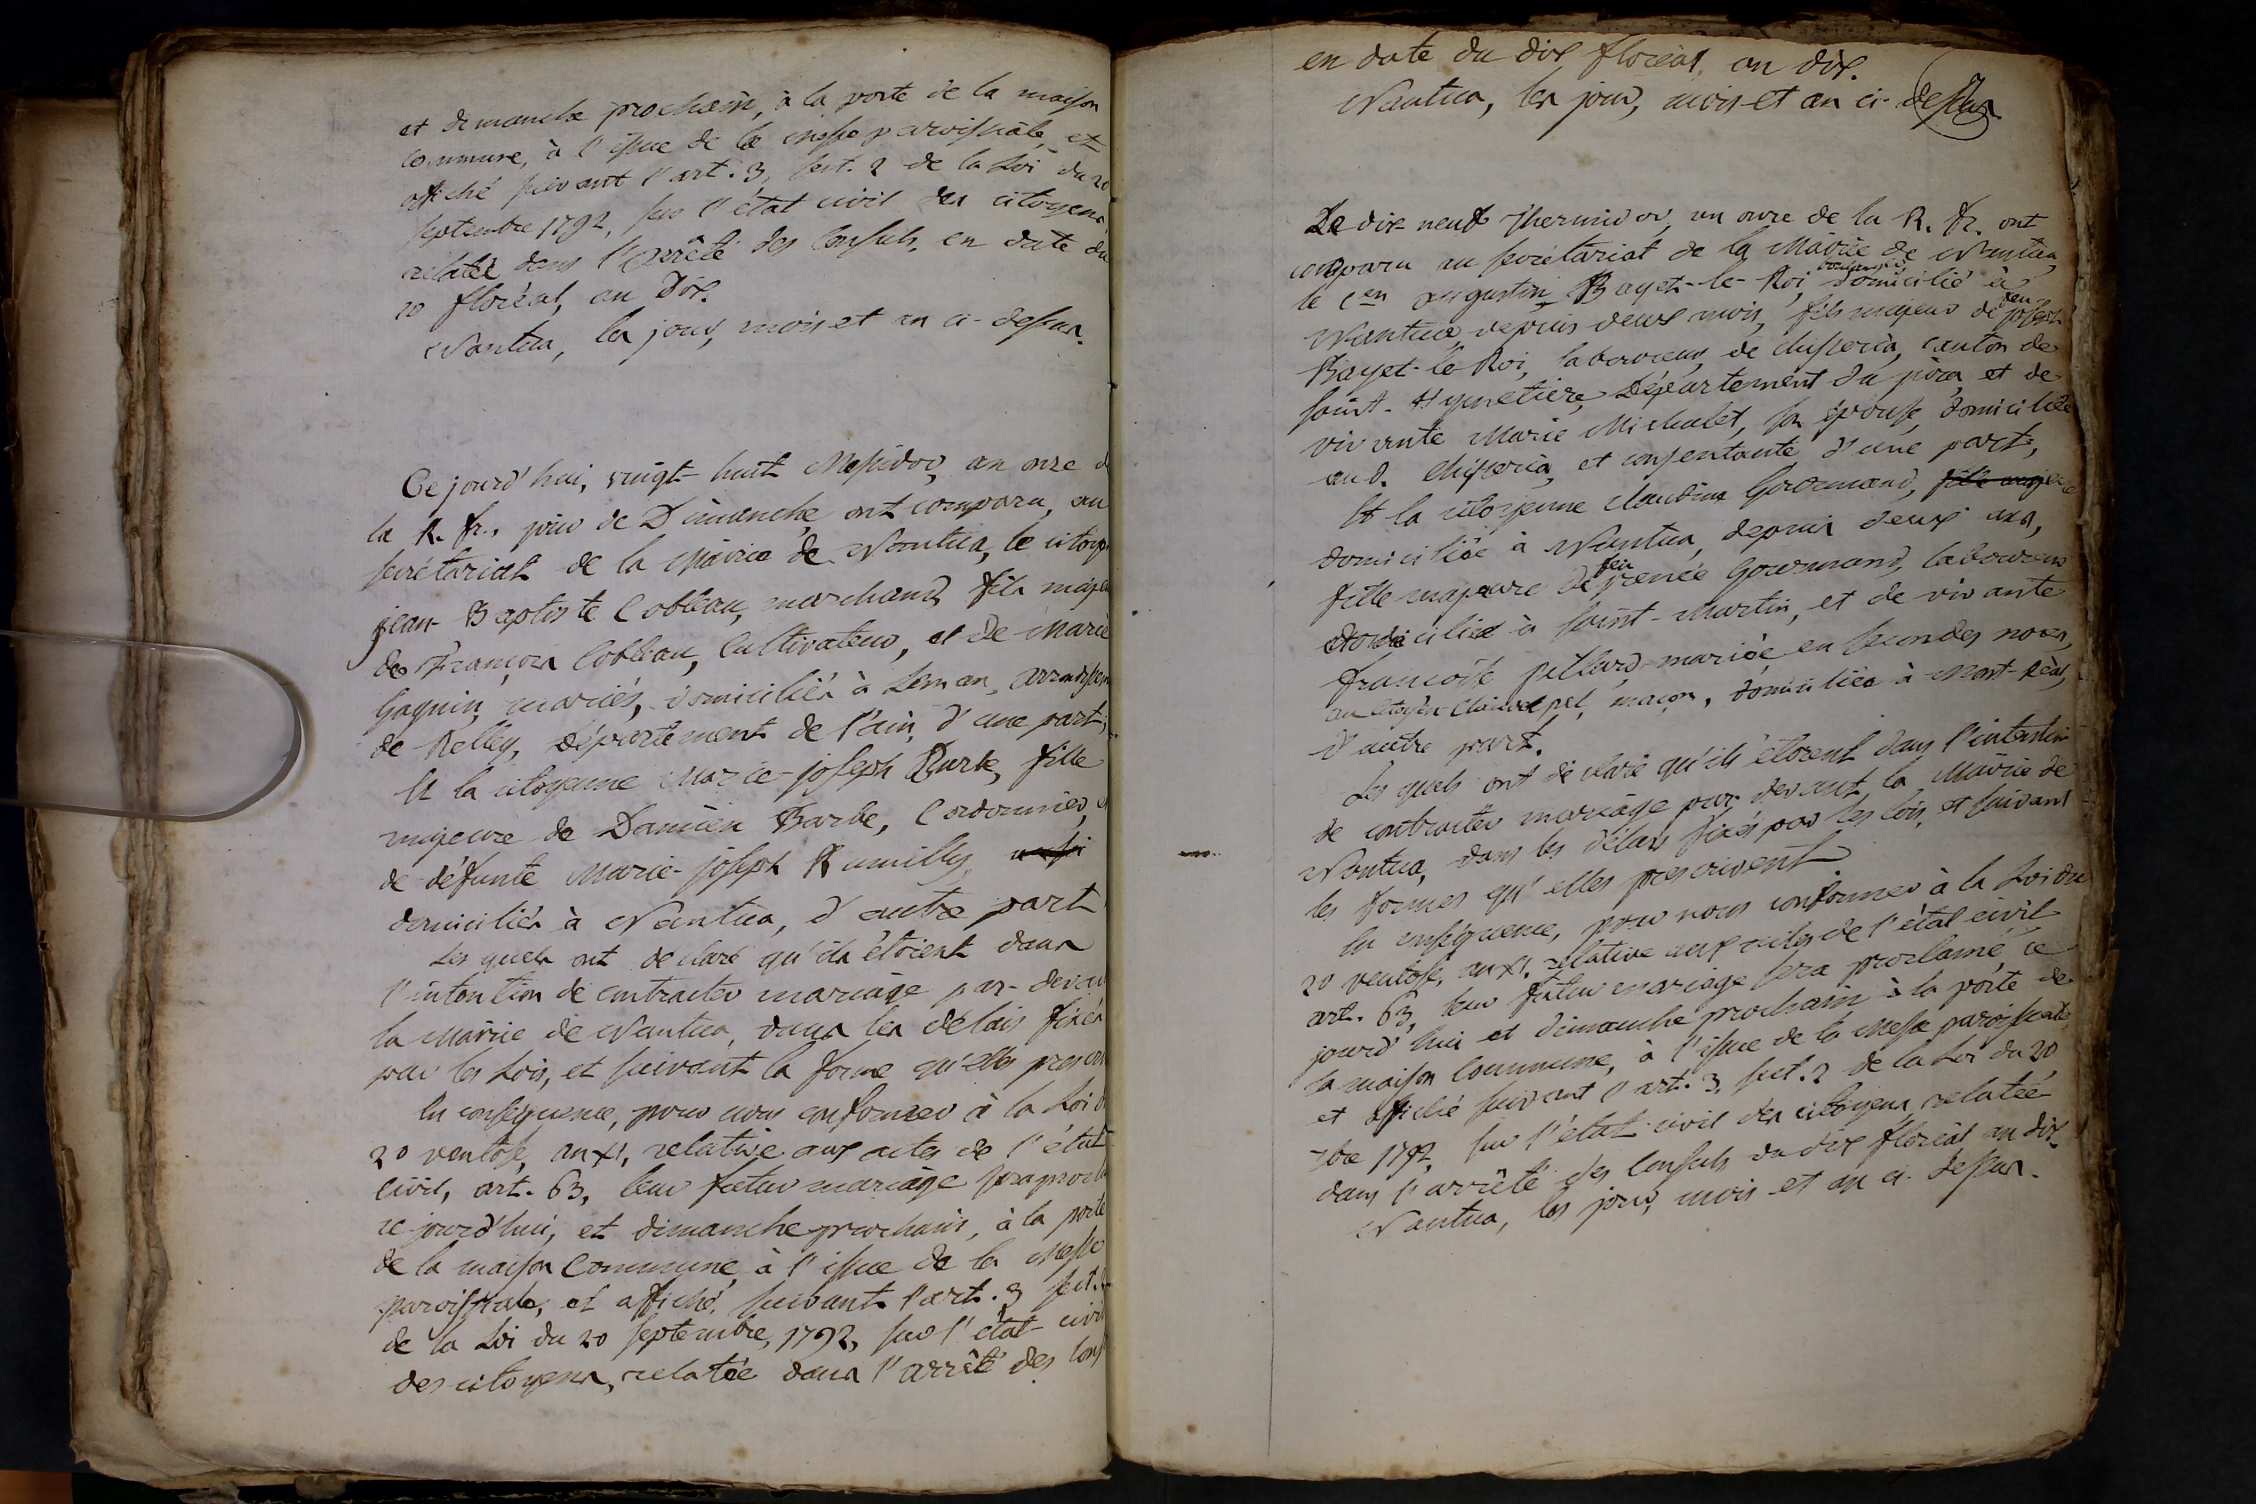 et dimanche prochain, à la porte de la maison
commune, à l'issue de la messe paroissiale, et
affiché suivant l'art. 3, sect. 2 de la Loi du 20
septembre 1792, sur l'état civil des citoyens,
relatée dans l'arrêté des Consuls, en date du
10 floréal, an dix.
Nantua, les jour, mois et an ci-dessus.
Ce jourd'hui, vingt-huit Messidor, an onze d
la R. fr., jour de Dimanche ont comparu, au
secrétariat de la Mairie de Nantua, le citoy
jean-Baptiste Cobleau, marchand, fils maj
de françois Cobleau, Cultivateur, et de Marie
Goguin, mariés, domiciliés à Leman, arrondissem
de Belley, département de l'ain, d'une part;
Et la citoyenne Marie-joseph Barbe, fille
majeure de Damien Barbe, Cordonnier, et
de défunte Marie-joseph Rumilly,
domiciliés à Nantua, d'autre part
Les quels ont déclaré qu'ils étoient dans
l'intention de contracter mariage par-devant
la Mairie de Nantua, dans les délais fixés
par les Lois, et suivant la forme qu'elles prescri
En conséquence, pour nous conformer à la Loi d
20 ventose, an XI, relative aux actes de l'état
civil, art. 63, leur futur mariage sera procla
ce jourd'hui, et dimanche prochain, à la porte
de la maison Commune, à l'issue de la Messe
paroissiale, et affiché, suivant l'art. 3 sect.
de la Loi du 20 septembre, 1792, sur l'état civil
des citoyens, relatée dans l'arrêté des Cons
en date du dix floréal, an dix.
Nantua, les jour, mois et an ci-dessus
Le dix neuf Thermidor, an onze de la R. fr. ont
comparu au secrétariat de la Mairie de Nantua,
le Cen Augustin Bayet-le-Roi, domicilié à
Nantua, depuis deux mois, fils majeur de feu joseph
Bayet-le-Roi, laboureur, de Chisseria, canton de
saint-Hymetière, Département du jura, et de
vivante Marie Michalet, son épouse, domiciliée
aud. Chisseria, et consentante d'une part,
Et la citoyenne Claudine Gourmand, fille majeure
domiciliée à Nantua, depuis deux ans,
fille majeure de feu renée Gourmand, laboureur
domicilié à saint-Martin, et de vivante
françoise juillard mariée en secondes noces,
au citoyen Claude pel, maçon, domiciliée à Mont-Réal,
d'autre part.
Les quels ont déclaré qu'ils étoient dans l'intention
de contracter mariage par-devant la Mairie de
Nantua, dans les délais fixés par les lois, et suivant
les formes qu'elles prescrivent.
En conséquence, pour nous conformer à la Loi du
20 ventose, an XI, relative aux actes de l'état civil
art. 63, leur futur mariage sera proclamé, ce
jourd'hui et dimanche prochain, à la porte de
la maison Commune, à l'issue de la Messe paroissiale,
et affiché suivant l'art. 3, sect. 2 de la Loi du 20
7bre 1792, sur l'état civil des citoyens, relatée
dans l'arrêté des Consuls du dix floréal an dix.
Nantua, les jour, mois et an ci-dessus.